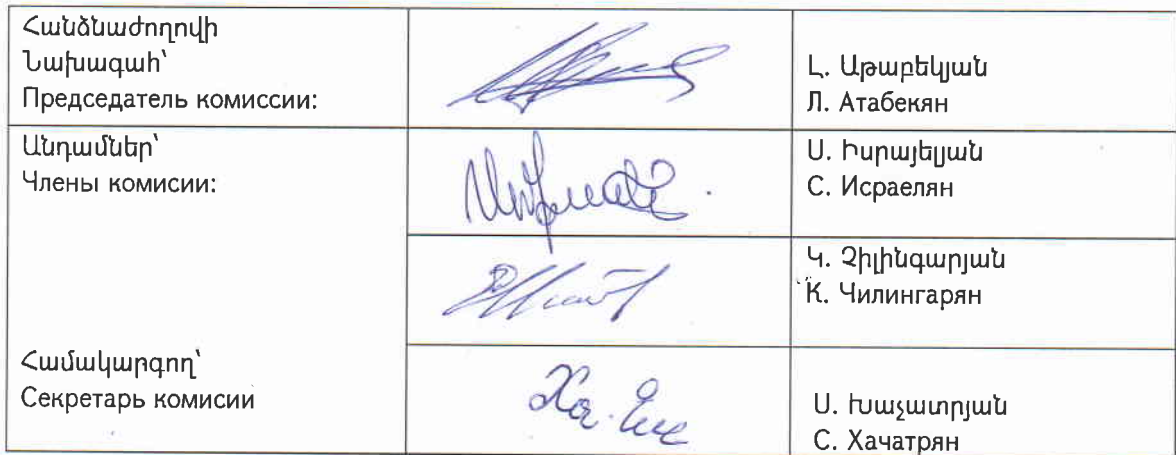 Հանձնաժողովի
Նախագահ՝
Председатель комиссии:
Լ. Աթաբեկյան
Л. Атабекян
Անդամներ՝
Члены комисии:
Ս. Իսրայելյան
С. Исраелян
Կ. Չիլինգարյան
К. Чилингарян
Համակարգող՝
Секретарь комисии
Ս. Խաչատրյան
С. Хачатрян